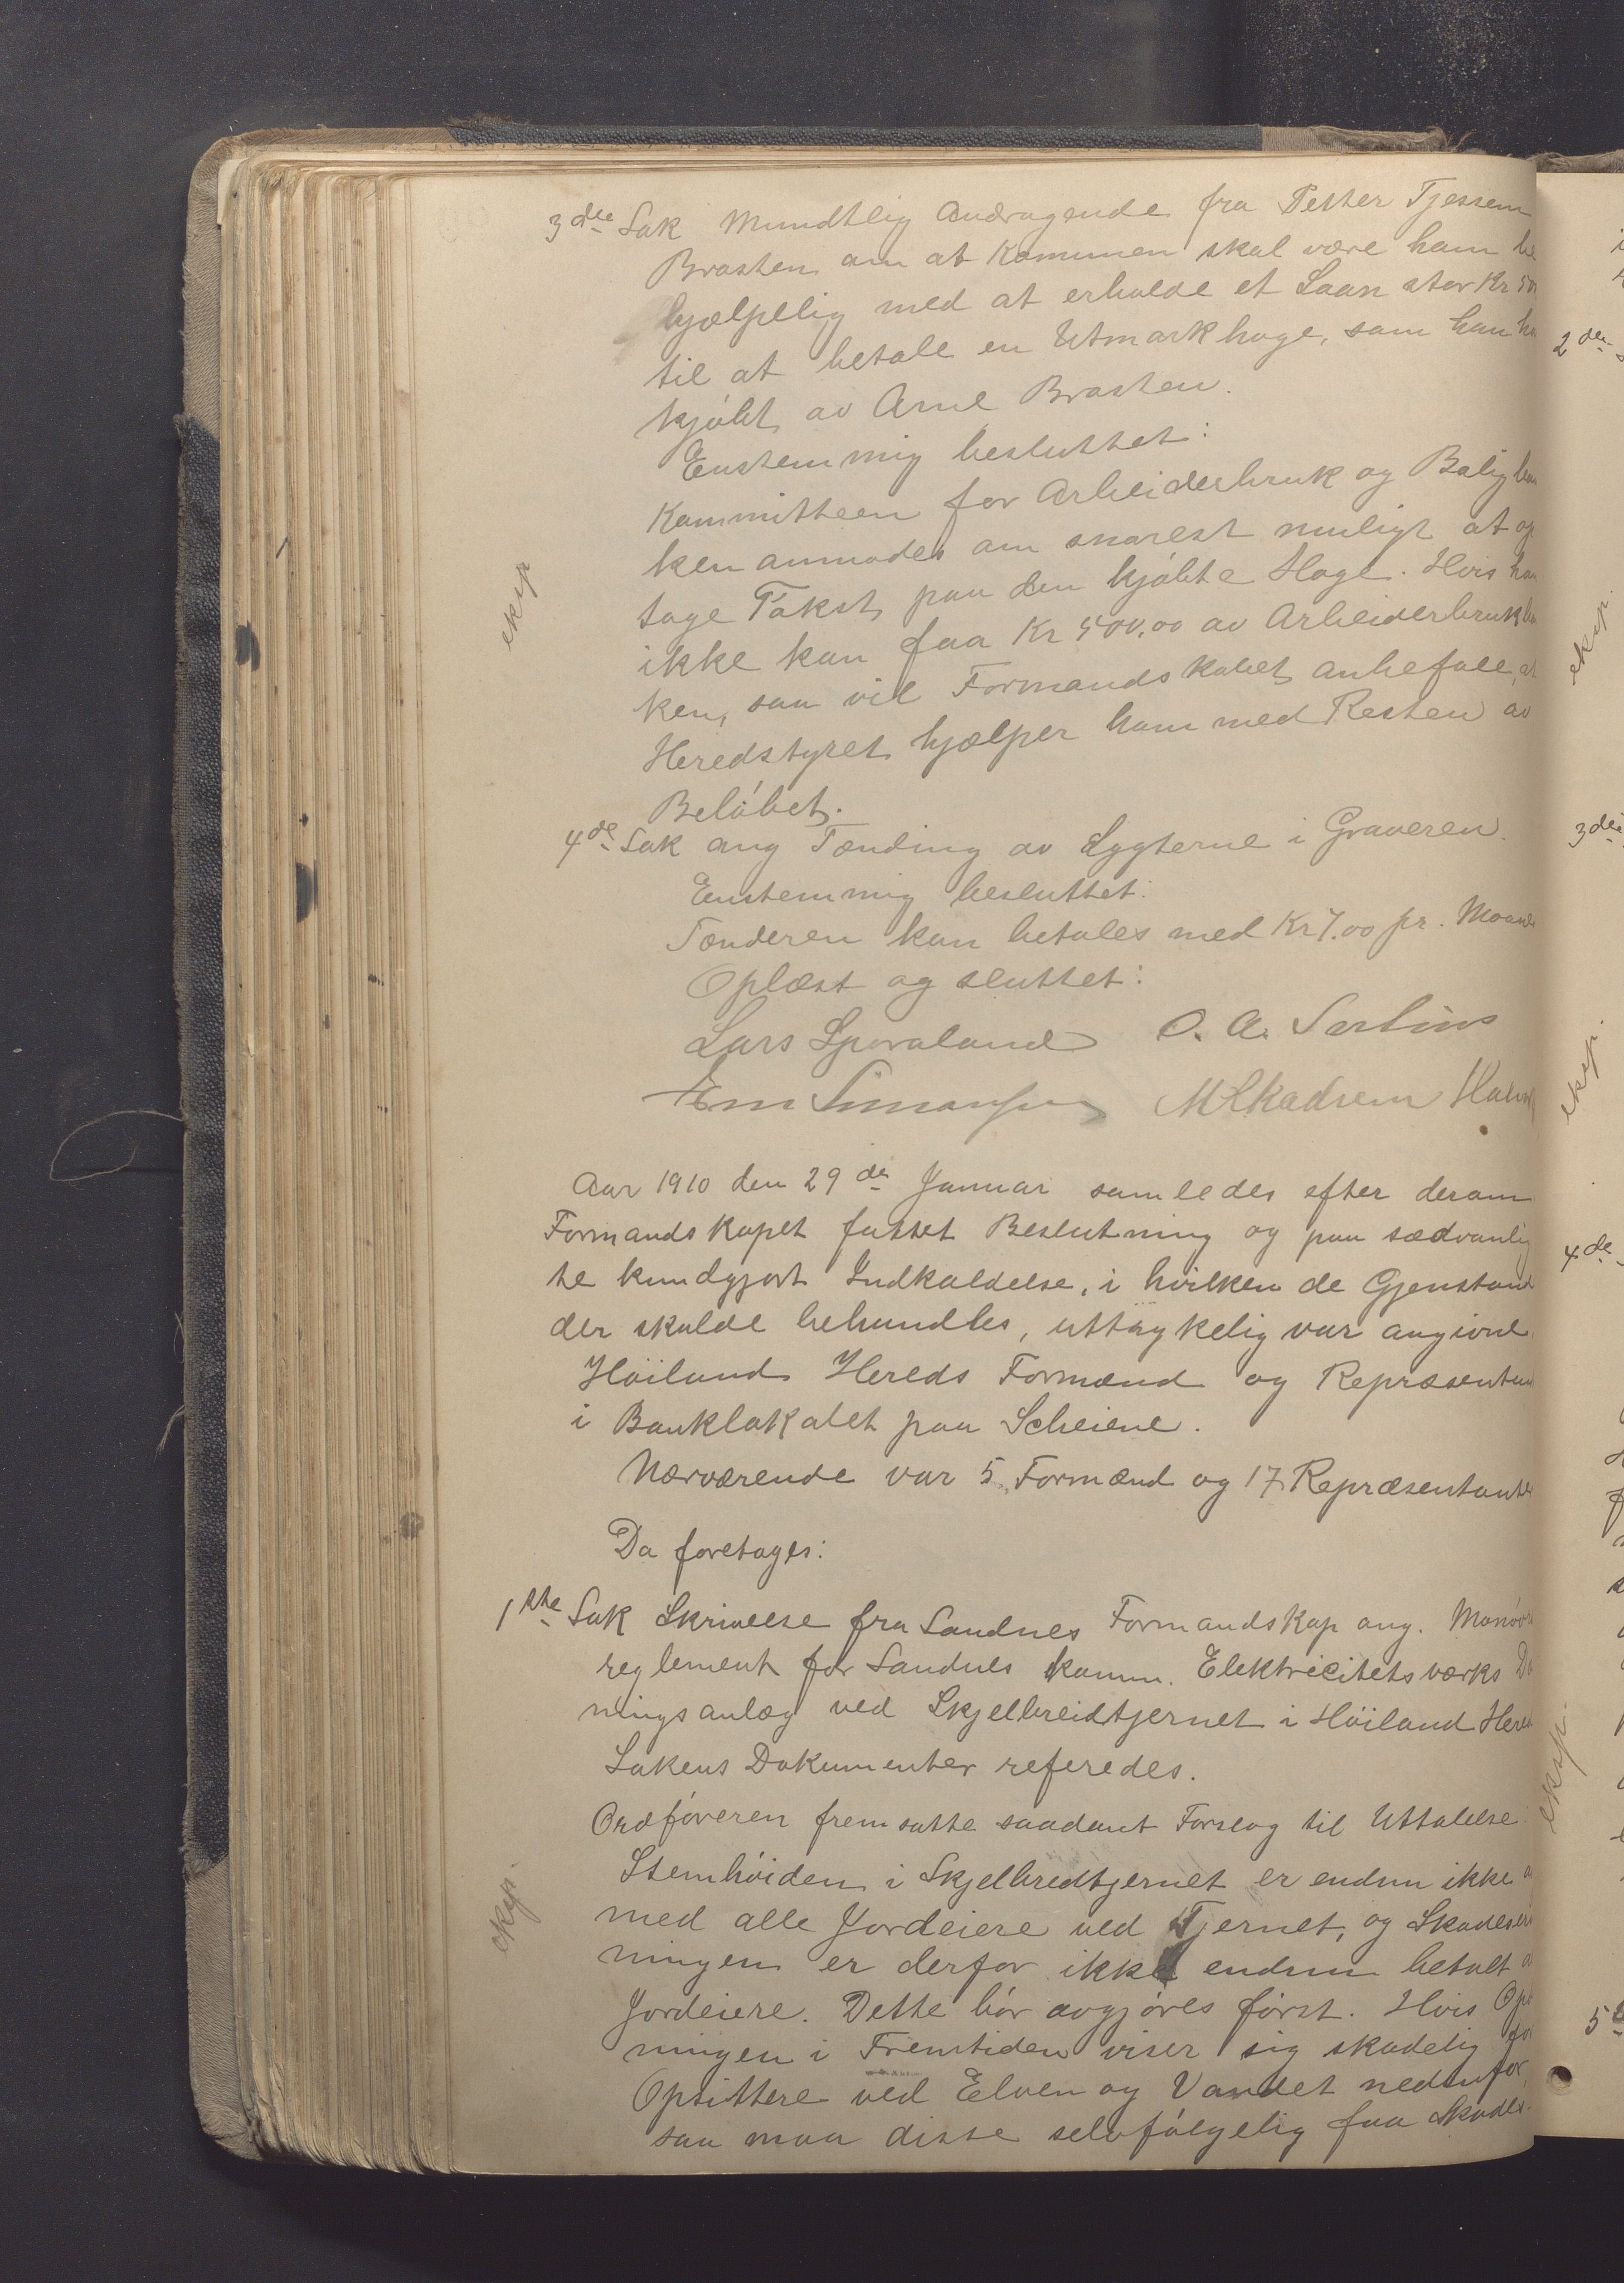 3die Sak Mundtlig Andragende fra Petter Tjessem
Brasten om at Kommunen skal være ham be
hjælpelig med at erholde et Laan stor Kr 500
til at betale en Utmarkhage, som han ha
kjøbt av Arne Brasten.
Enstemmig besluttet:
Kommitteen for Arbeiderbruk og Boligban
ken anmodes om snarest muligt at op
tage Takst paa den kjøbte Hage. Hvis han
ikke kan faa Kr 500,00 av Arbeiderbrukban
ken, saa vil Formandskabet anbefale, at
Heredstyret hjælper ham med Resten av
Beløbet.
eksp
4de Sak ang Tænding av Lygterne i Graveren.
Enstemmig besluttet:
Tænderen kan betales med Kr 7.00 pr. Maaned
Oplæst og sluttet:
Lars Sporaland O. A. Serlius
Em Simonsen M Skadsem
Aar 1910 den 29de Januar samledes efter derom
Formandskapet fattet Beslutning og paa sædvanlig
te kundgjort Indkaldelse, i hvilken de Gjenstand
der skulde behandles, uttrykelig var angivne
Höiland Hereds Formænd og Repræsentan
i Banklokalet paa Scheiene.
Nærværende var 5 Formænd og 17 Repræsentanter
Da foretages:
1ste Sak Skrivelse fra Sandnes Formandskap ang. Manöv
reglement for Sandnes komm. Elektricitetsværks D
ningsanlæg ved Skjelbreidtjernet i Höiland Hered
Sakens Dokumenter referedes.
Ordföreren fremsatte saadant Forslag til Uttalelse:
Stemhöiden i Skjelbredtjernet er endnu ikke a
med alle Jordeiere ved Tjernet, og Skadeser
ningen er derfor ikke endnu betalt a
Jordeiere. Dette bör avgjöres först. Hvis Op
ningen i Fremtiden viser sig skadelig for
Opsittere ved Elven og Vandet nedenfor,
saa maa disse selvfölgelig faa Skades
eksp.
2den
3die
4de
5
eksp.
eksp.
eksp.